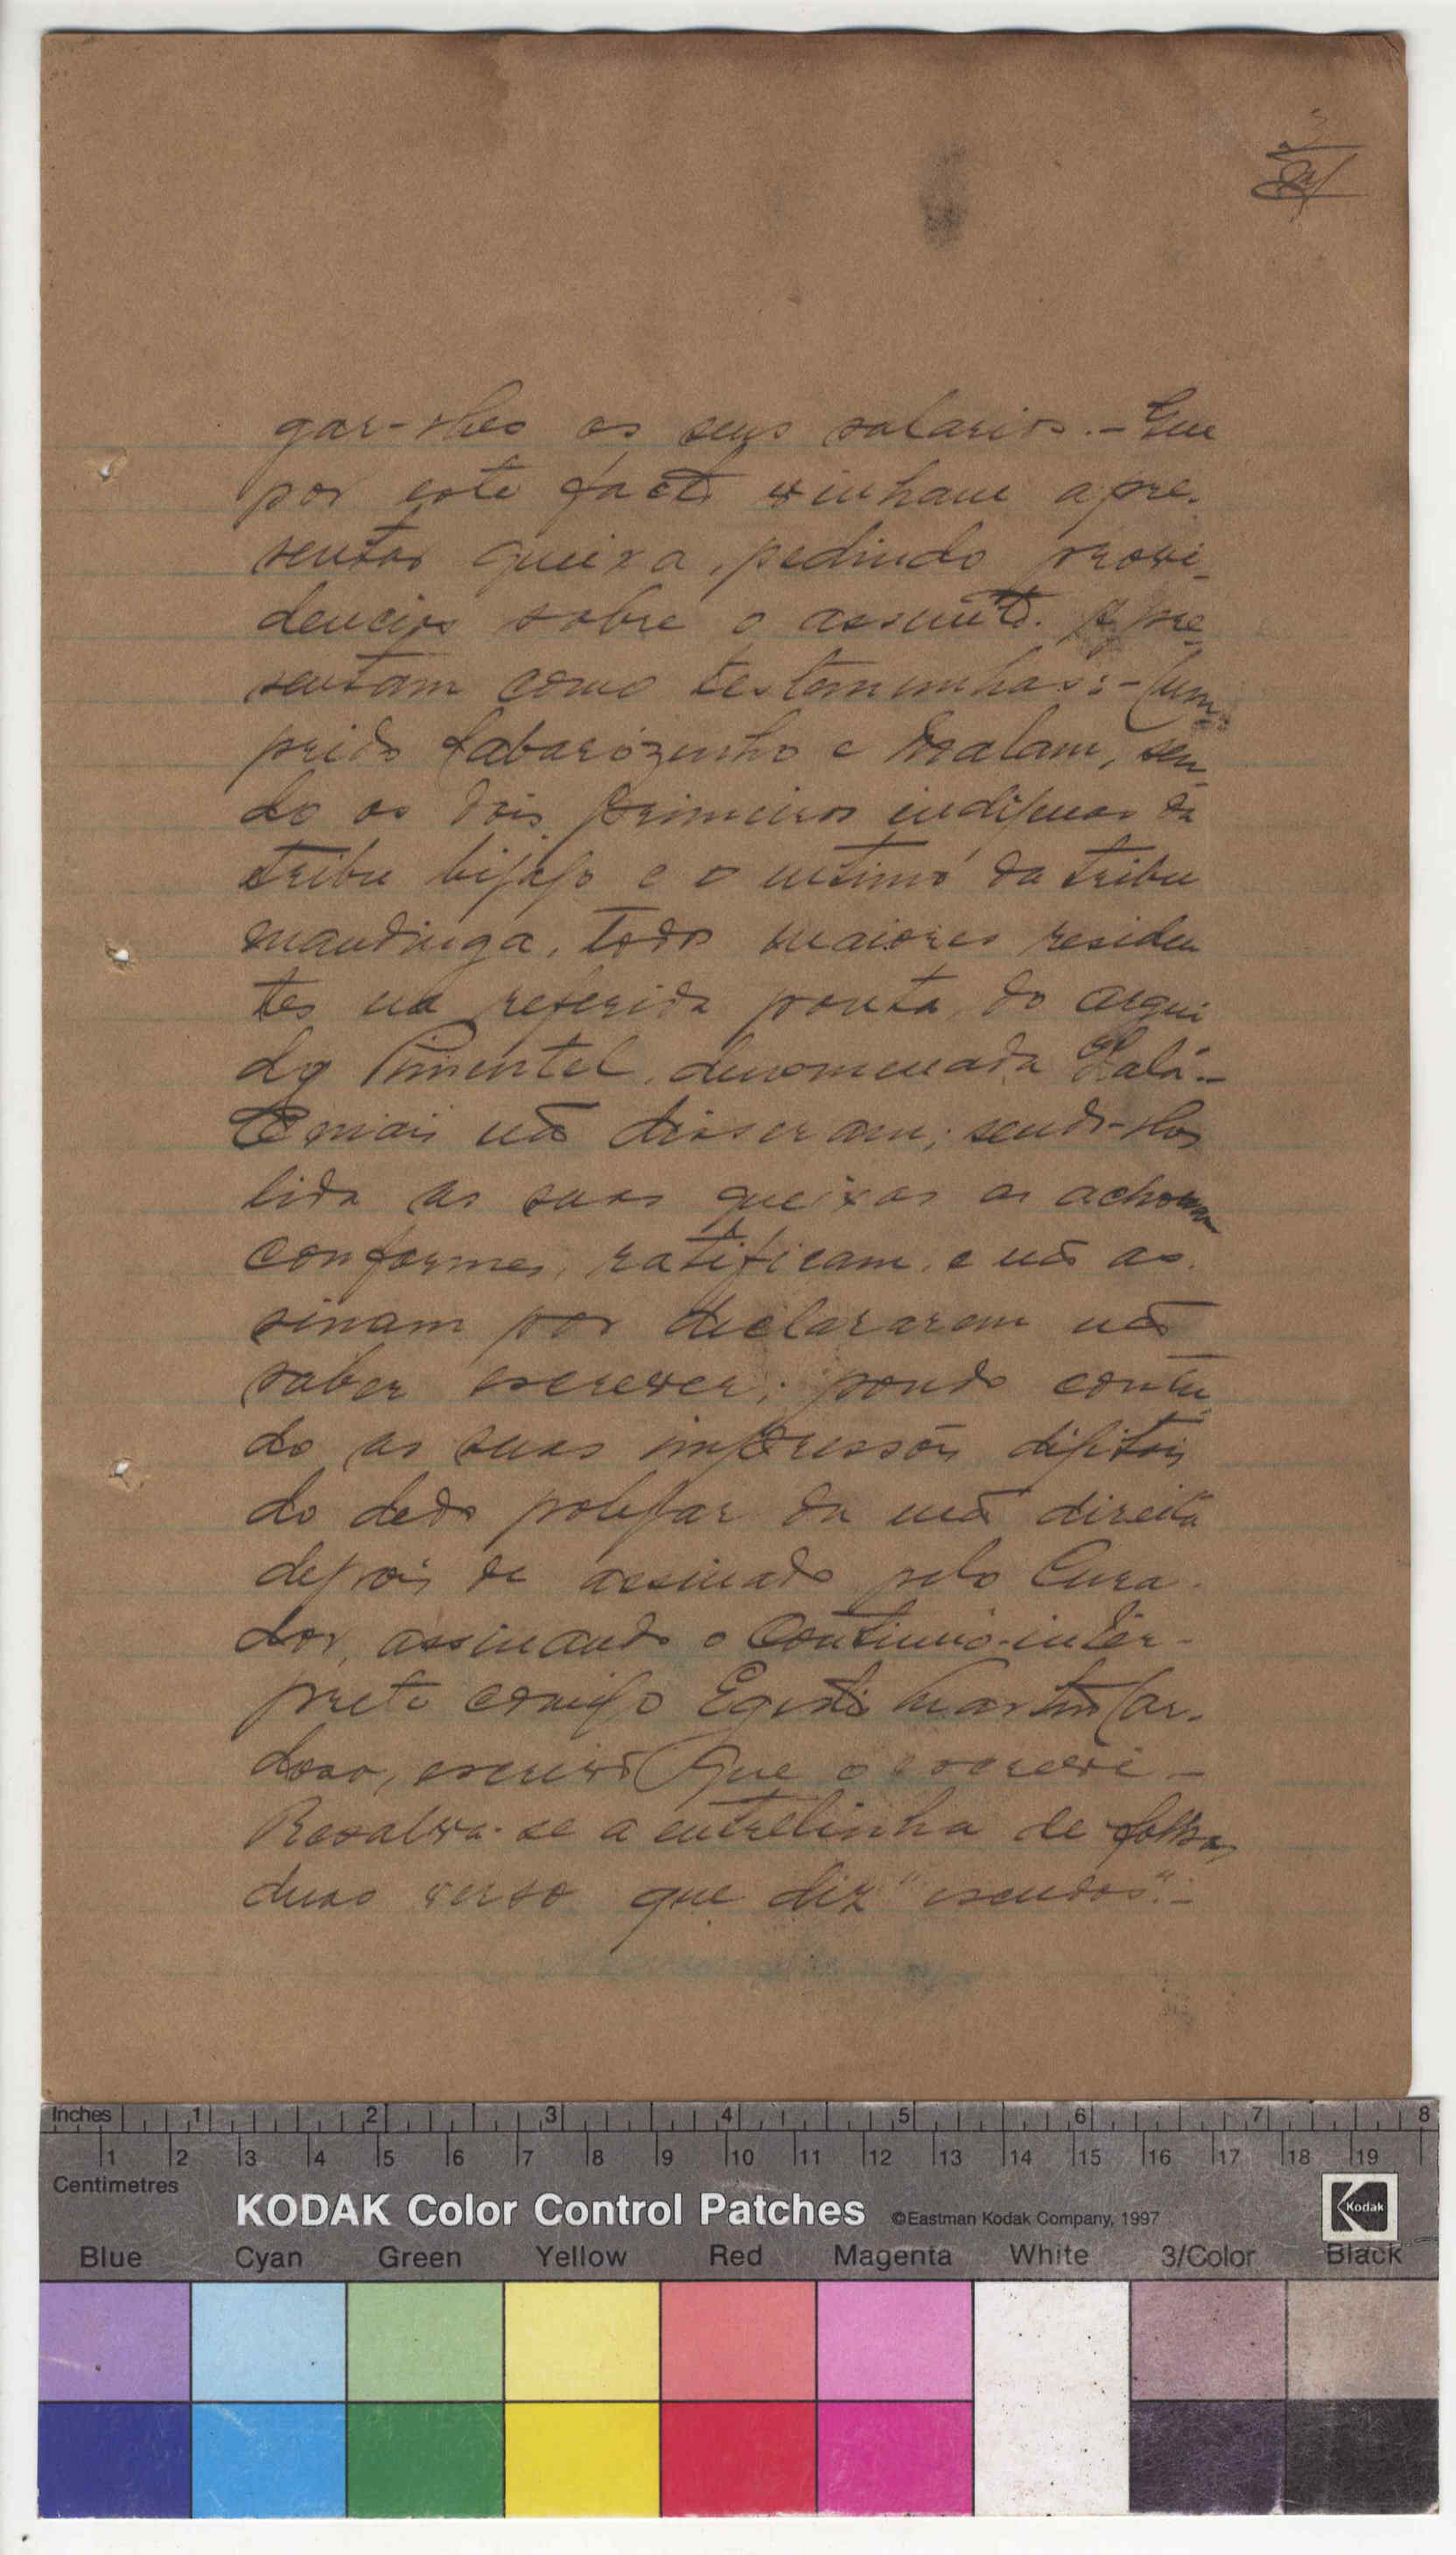 3
gar-lhes os seus salarios.- Que
por este facto vinham apre-
sentar queixa, pedindo provi-
dencias sobre o assunto. Apre-
sentam como testemunhas:- Cum-
prido Labarózinho e Malam, sen-
do os dois primeiros indigenas da
tribu bijagó e o ultimo da tribu
mandinga, todos maiores residen
tes na referida ponta do argui
do Pimentel, denomenada Lalá.-
E mais não disseram; sendo-lhes
lida as suas queixas as acham
conformes, ratificam, e não as-
sinam por declararam não
saber escrever; pondo contu-
do as suas impressões digitais
do dedo polegar da mão direita
depois de assinado pelo Cura-
dor, assinando o Continuo-intér-
prete comigo Egidio Martins Car-
doso, escrivão que o escrevi -
Resalva-se a entrelinha de folhas
duas verso que diz "escudos".-
Inches 1 2 3 4 5 6 7 8
1 2 3 4 5 6 7 8 9 10 11 12 13 14 15 16 17 18 19
Centimetres
KODAK Color Control Patches ©Eastman Kodak Company, 1997 Kodak
Blue Cyan Green Yellow Red Magenta White 3/Color Black